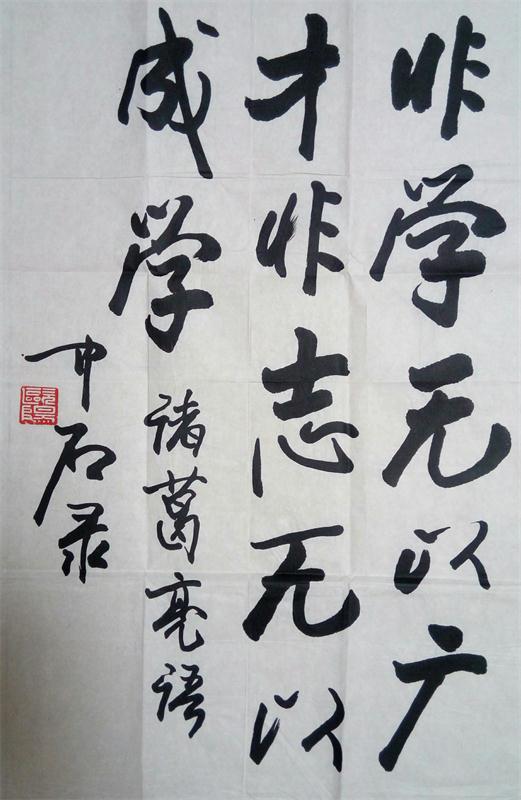 非学无以广
才非志无以
成学
诸葛亮语
中石录
欧阳